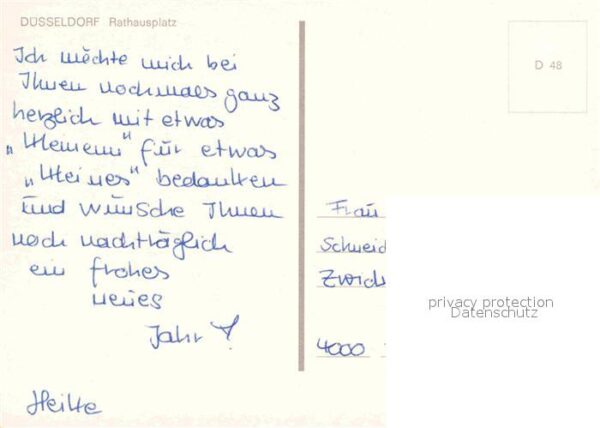 DÜSSELDORF Rathausplatz
D 48
Ich möchte mich bei
Ihnen nochmals ganz
herzlich mit etwas
„Kleinem" für etwas
„Kleines" bedanken
und wünsche Ihnen
noch nachträglich
ein frohes
neues
Jahr!
Heike
Frau
Schneid
4000
privacy protection
Datenschutz